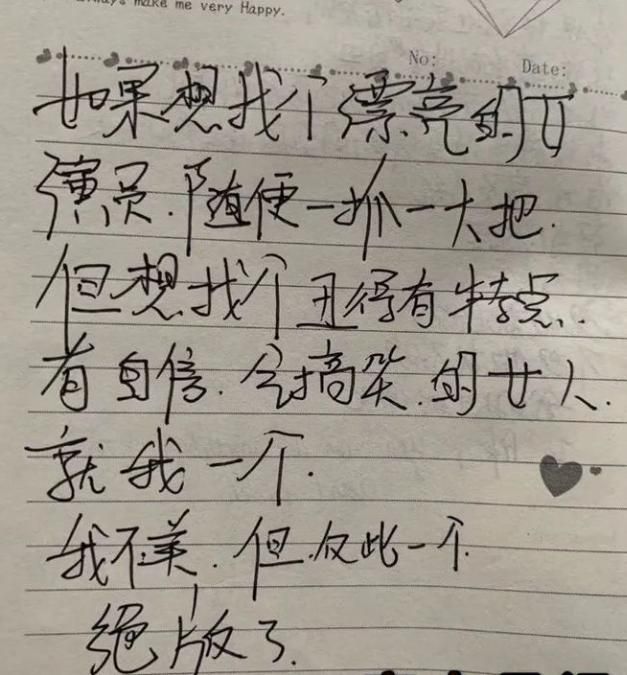 make me very Happy.
No:
Date:
如果想找个漂亮的女
演员.随便一抓一大把.
但想找个丑得有特点.
有自信.会搞笑.的女人.
就我一个.
我不美.但.仅此一个.
绝版了.